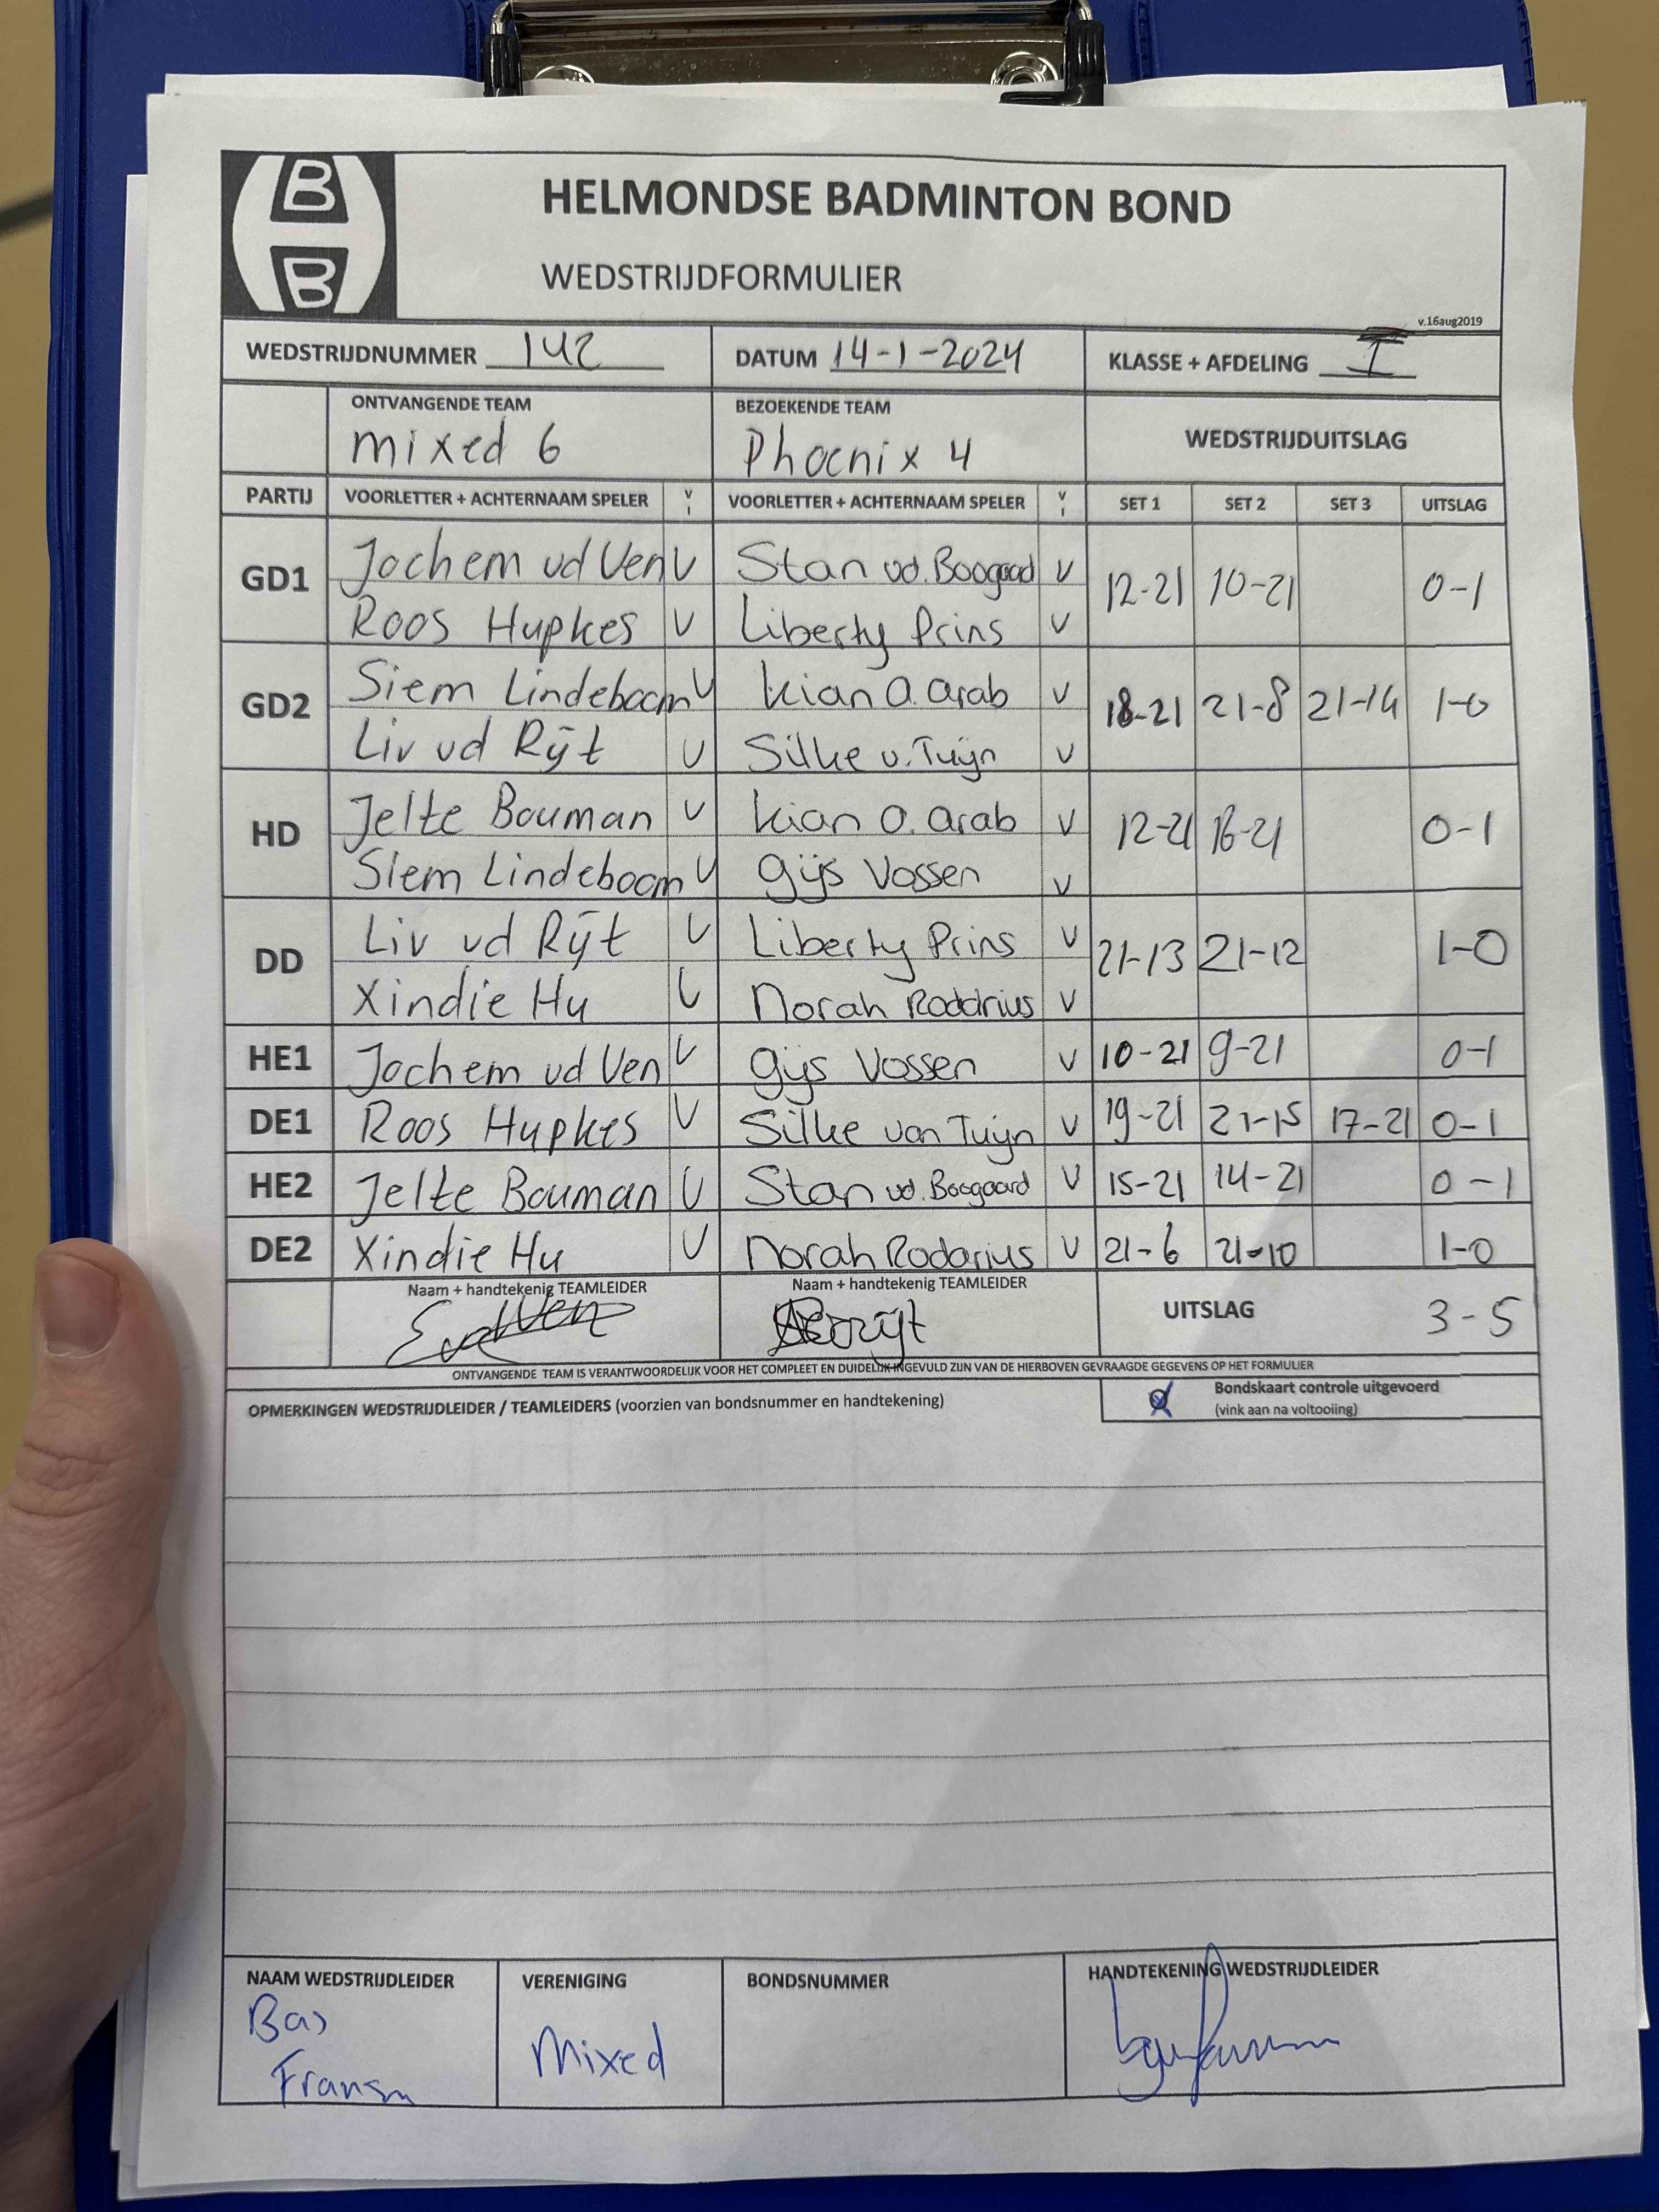 B
B
HELMONDSE BADMINTON BOND
WEDSTRIJDFORMULIER
v.16aug2019
WEDSTRIJDNUMMER 142 DATUM 14-1-2024 KLASSE + AFDELING I
ONTVANGENDE TEAM BEZOEKENDE TEAM WEDSTRIJDUITSLAG
mixed 6 Phoenix 4
PARTIJ VOORLETTER + ACHTERNAAM SPELER V I VOORLETTER + ACHTERNAAM SPELER V I SET 1 SET 2 SET 3 UITSLAG
GD1 Jochem vd Ven V Stan vd. Boogaad V 12-21 10-21 0-1
Roos Hupkes V Liberty Prins V
GD2 Siem Lindeboom V Kian O. Arab V 18-21 21-8 21-14 1-0
Liv vd Rijt V Silke v. Tuijn V
HD Jelte Bouman V Kian O. Arab V 12-21 16-21 0-1
Siem Lindeboom V Gijs Vossen V
DD Liv vd Rijt V Liberty Prins V 21-13 21-12 1-0
Xindie Hu V Norah Rodarius V
HE1 Jochem vd Ven V Gijs Vossen V 10-21 9-21 0-1
DE1 Roos Hupkes V Silke van Tuijn V 19-21 21-15 17-21 0-1
HE2 Jelte Bouman V Stan vd. Boogaard V 15-21 14-21 0-1
DE2 Xindie Hu V Norah Rodarius V 21-6 21-10 1-0
Naam + handtekenig TEAMLEIDER Naam + handtekenig TEAMLEIDER
UITSLAG 3-5
ONTVANGENDE TEAM IS VERANTWOORDELIJK VOOR HET COMPLEET EN DUIDELIJK INGEVULD ZIJN VAN DE HIERBOVEN GEVRAAGDE GEGEVENS OP HET FORMULIER
OPMERKINGEN WEDSTRIJDLEIDER / TEAMLEIDERS (voorzien van bondsnummer en handtekening) Bondskaart controle uitgevoerd
(vink aan na voltooiing)
NAAM WEDSTRIJDLEIDER VERENIGING BONDSNUMMER HANDTEKENING WEDSTRIJDLEIDER
Bas
Mixed